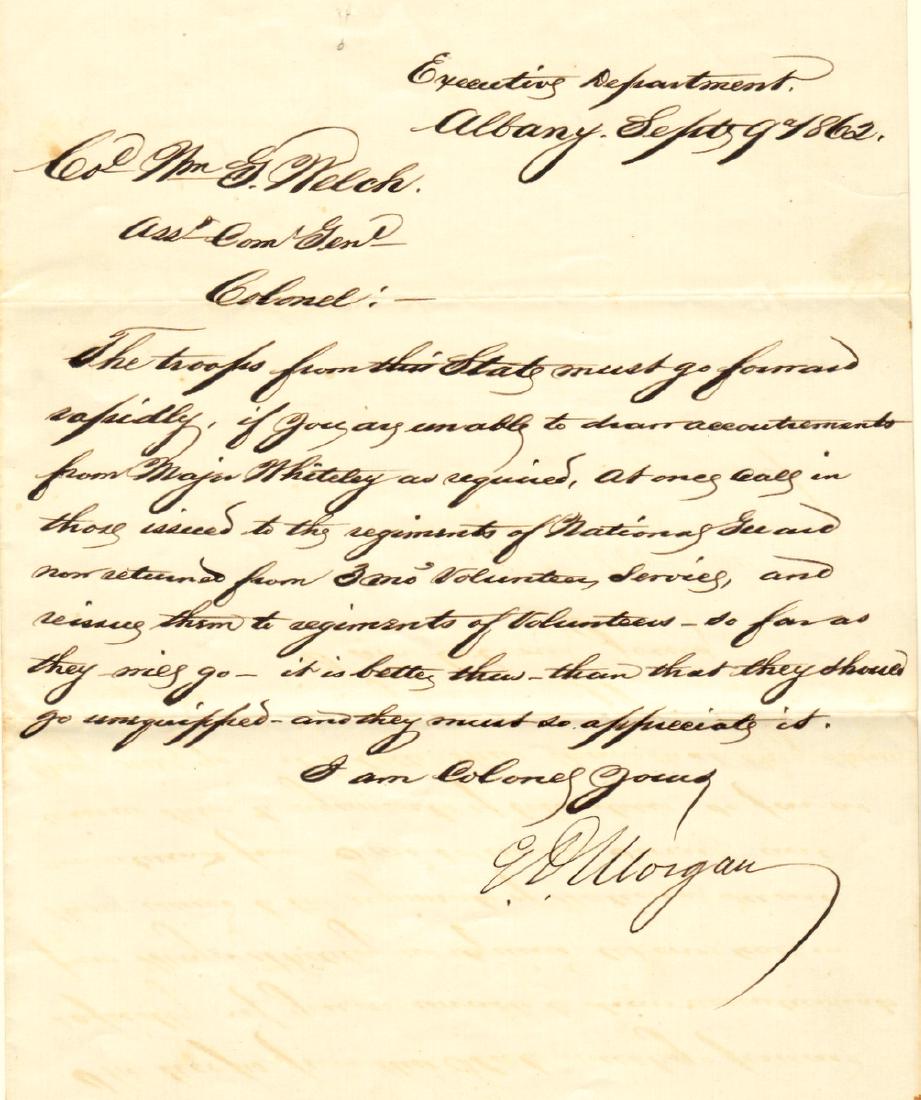 Executive Department.
Albany. Sept 9th 1862.
Col Wm G. Welch.
Asst Com Genl
Colonel: —
The troops from this State must go forward
rapidly, if you are unable to draw accoutrements
from Major Whiteley as required, At once call in
those issued to the regiments of National Guard
now returned from 3 mos Volunteer Service, and
reissue them to regiments of Volunteers – so far as
they will go – it is better thus – than that they should
go unequipped – and they must so appreciate it.
I am Colonel Yours
E. D. Morgan